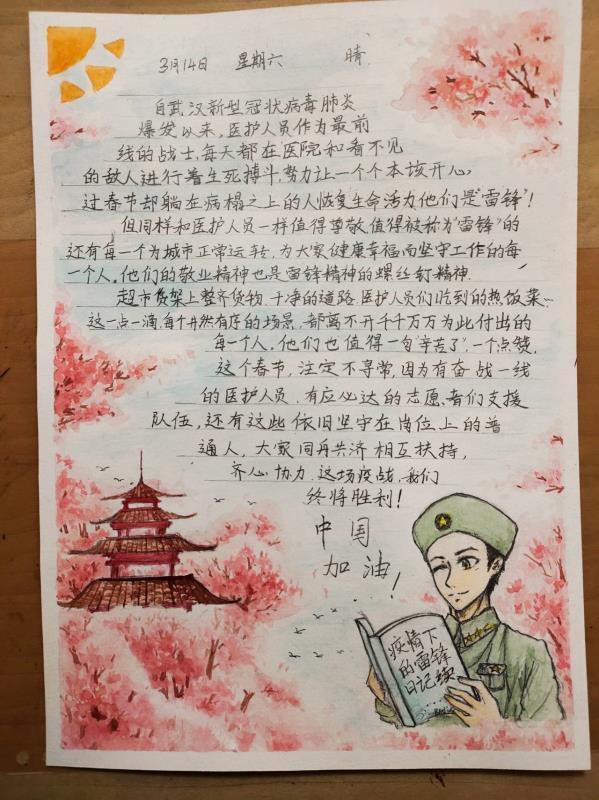 3月14日 星期六 晴
自武汉新型冠状病毒肺炎
爆发以来,医护人员作为最前
线的战士,每天都在医院和看不见
的敌人进行着生死搏斗,努力让一个个本该开心,
过春节却躺在病榻之上的人恢复生命活力他们是"雷锋"!
但同样和医护人员一样值得尊敬,值得被称为"雷锋"的
还有每一个为城市正常运转,为大家健康幸福而坚守工作的每
一个人。他们的敬业精神也是雷锋精神的螺丝钉精神.
超市货架上整齐货物,干净的道路,医护人员们吃到的热饭菜…
这一点一滴,每个井然有序的场景,都离不开千千万万为此付出的
每一个人,他们也值得一句"辛苦了",一个点赞.
这个春节,注定不寻常,因为有奋战一线
的医护人员,有应必达的志愿者们支援
队伍,还有这些依旧坚守在岗位上的普
通人,大家同舟共济相互扶持,
齐心协力,这场疫战,我们
终将胜利!
中国
加油!
疫情下
的雷锋
日记续